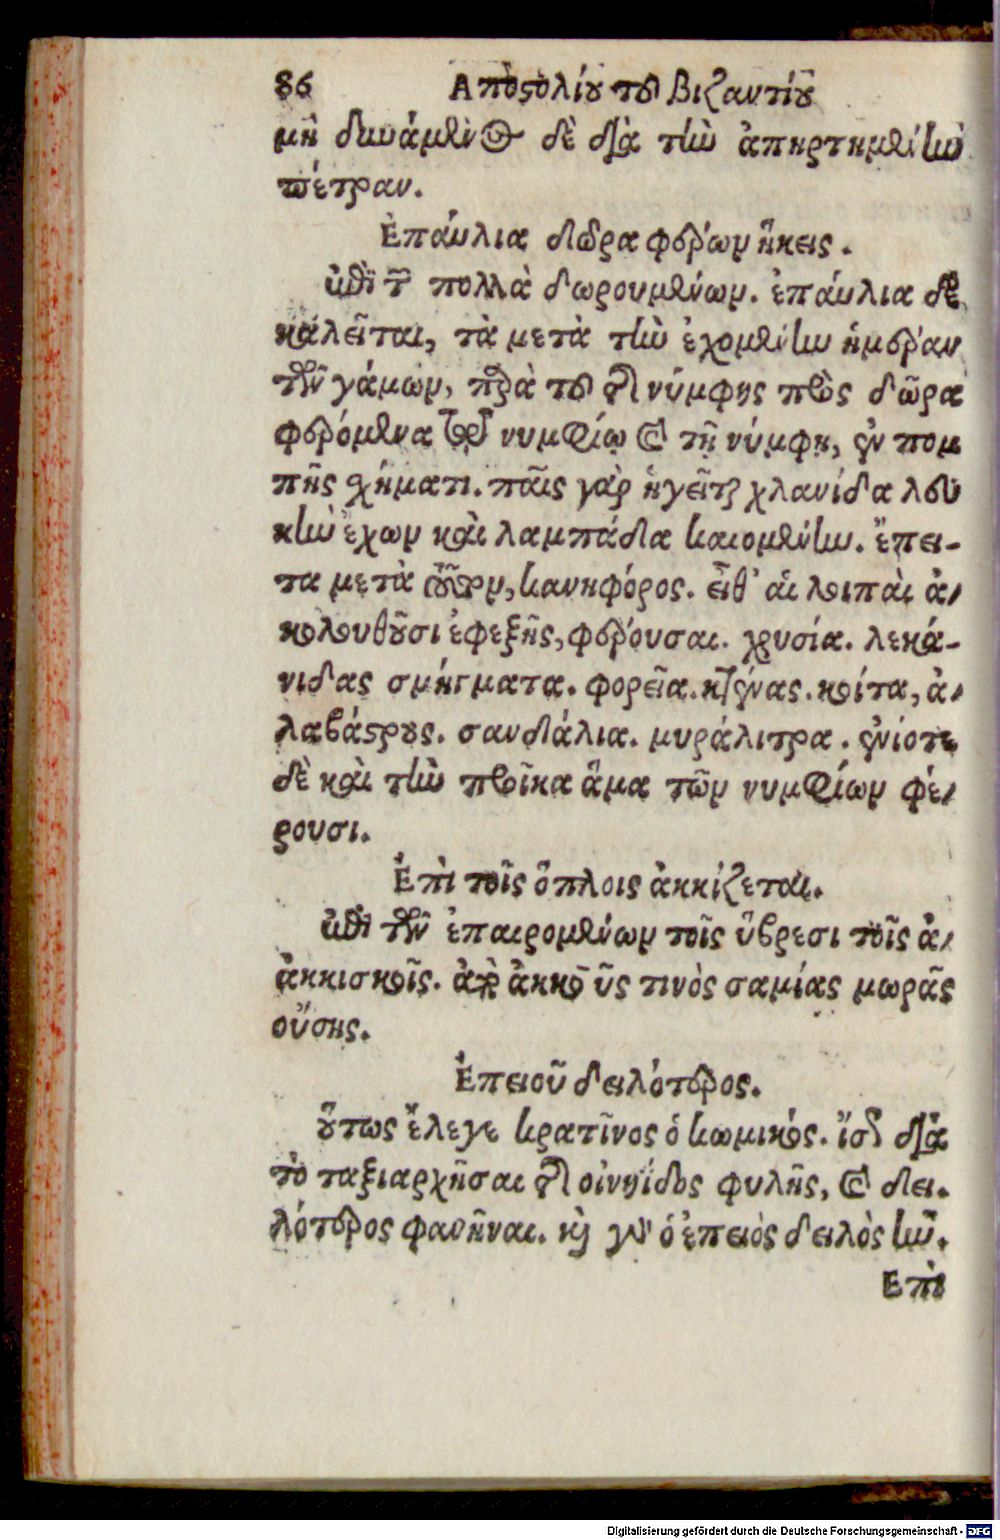 86 Αποστολίου τοῦ Βιζαντίου
μὴ δυνάμενος δὲ διὰ τὴν ἀπηρτημένην
πέτραν.
Ἐπαύλια δῶρα φέρων ἥκεις.
ἐπὶ τῶν πολλὰ δωρουμένων. ἐπαύλια δὲ
καλεῖται, τὰ μετὰ τὴν ἐχομένην ἡμέραν
τῶν γάμων, παρὰ τοῦ τῆς νύμφης πατρὸς δῶρα
φερόμενα τῷ νυμφίῳ καὶ τῇ νύμφῃ, ἐν πομ
πῆς σχήματι. παῖς γὰρ ἡγεῖται χλανίδα λευ
κὴν ἔχων καὶ λαμπάδα καιομένην. ἔπει-
τα μετὰ τοῦτον, κανηφόρος. εἶθ' αἱ λοιπαὶ ἀ-
κολουθοῦσι ἐφεξῆς, φέρουσαι. χρυσία. λεκά-
νιδας σμήγματα. φορεῖα. κτένας. κοίτα, ἀ-
λαβάστρους. σανδάλια. μυράλιτρα. ἐνίοτε
δὲ καὶ τὴν προῖκα ἅμα τῶν νυμφίων φέ-
ρουσι.
Ἐπὶ τοῖς ὅπλοις ἀκκίζεται.
ἐπὶ τῶν ἐπαιρομένων τοῖς ὕβρεσι τοῖς ἀ-
ἀκκισκοῖς. ἀπὸ ἀκκοῦς τινὸς σαμίας μωρᾶς
οὔσης.
Ἐπειοῦ δειλότερος.
οὕτως ἔλεγε κρατῖνος ὁ κωμικός. ἴσως διὰ
τὸ ταξιαρχῆσαι τῆς οἰνηίδος φυλῆς, καὶ δει-
λότερος φανῆναι. καὶ γὰρ ὁ ἐπειὸς δειλὸς ἦν.
Επὶ
Digitalisierung gefördert durch die Deutsche Forschungsgemeinschaft - DFG